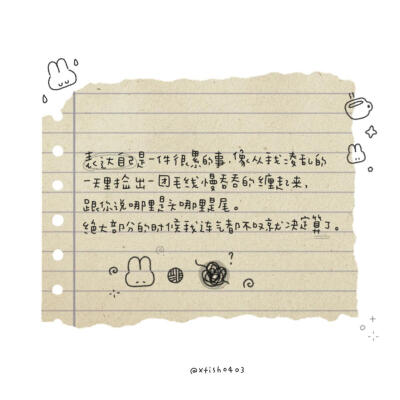 表达自己是一件很累的事,像从我凌乱的
一天里捡出一团毛线慢吞吞的缠起来,
跟你说哪里是头哪里是尾。
绝大部分的时候我连气都不叹就决定算了。
?
@xfish0403